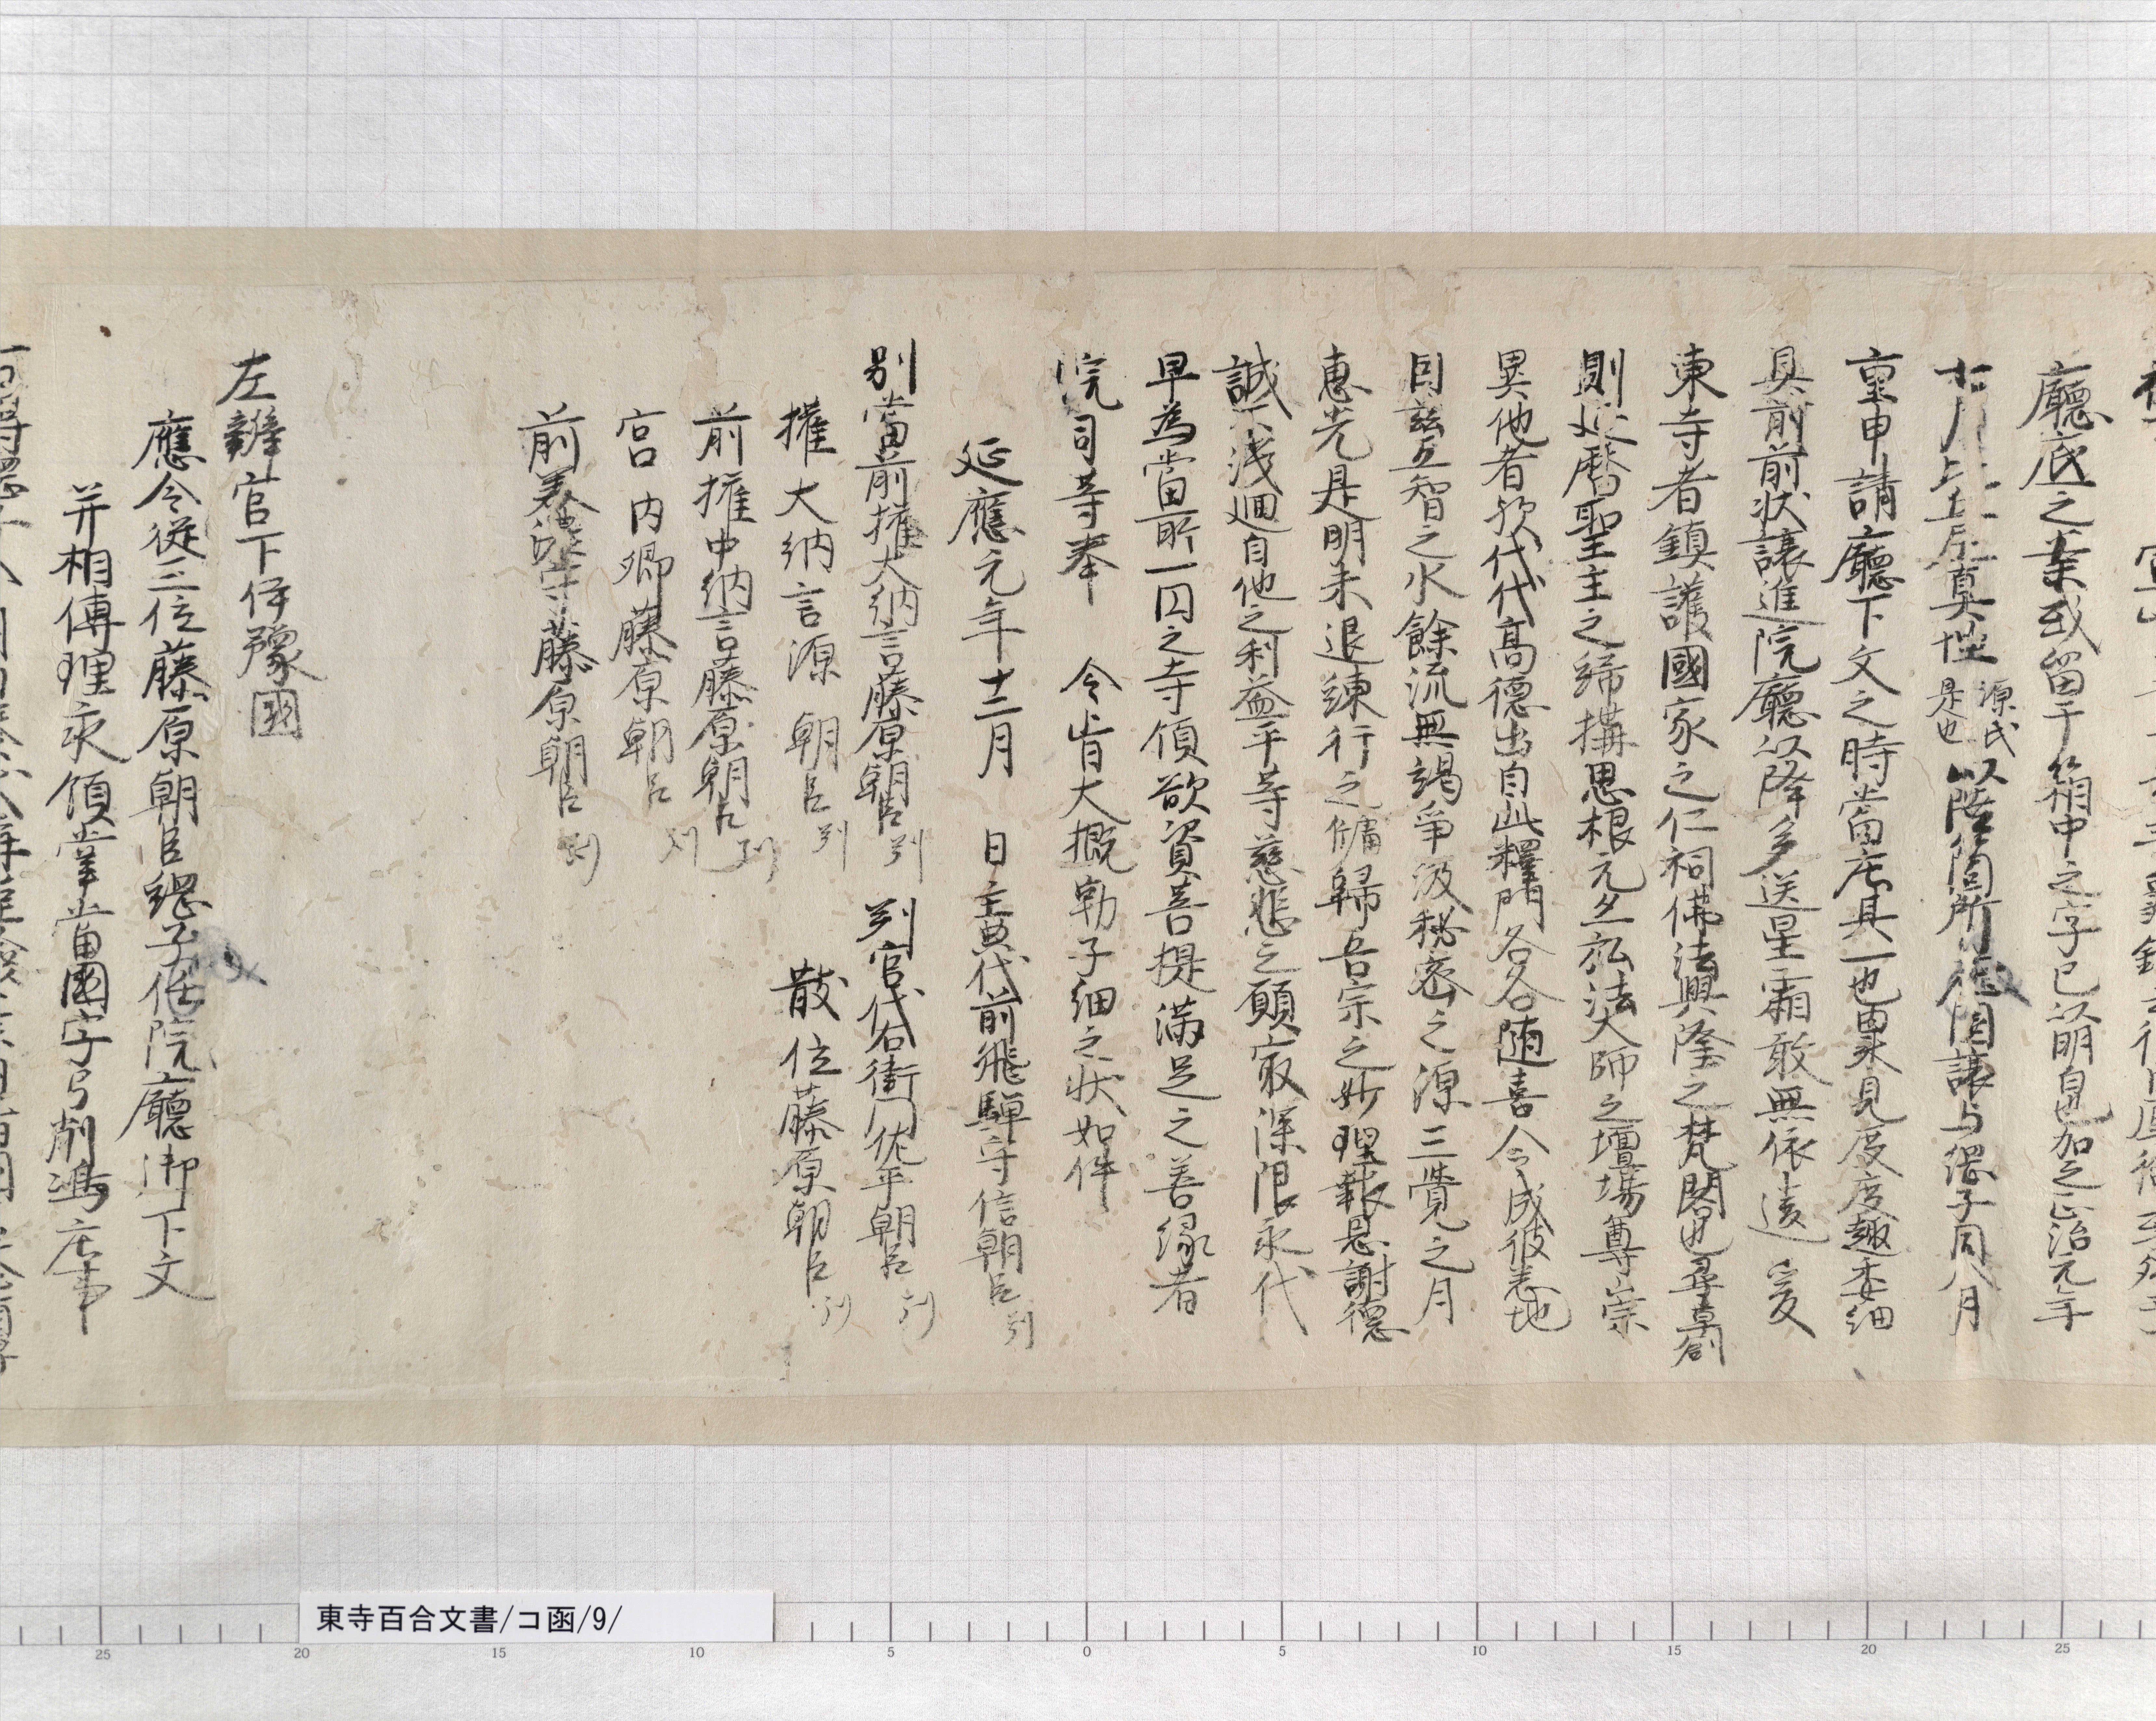 廳底之案或留于箱中之字已以明白也加之正治元年
真性源氏是也以陸箇所後因譲与緦子同八月
重申請廳下文之時當庄其一也果見度度趣委細
具前前状譲進院廳以降多送星霜敢無依違爰
東寺者鎮護國家之仁祠佛法興隆之梵閣也尋草創
則延暦聖主之締搆思根元亦弘法大師之壇場尊崇
異他者歟代代高德出自此釋門各各随喜今成彼忍地
因茲五智之水餘流無竭争汲秘密之源三覺之月
恵光是明未退練行之牗歸吾宗之妙理報恩謝德
誠不淺廻自他之利益平等慈悲之願最深限永代
早為當所一円之寺領欲資菩提満足之善縁者
院司等奉 令旨大概勒子細之状如件
延應元年十二月 日主典代前飛驒守信朝臣判
別當前權大納言藤原朝臣判 判官代右衛門佐平朝臣判
權大納言源朝臣判 散位藤原朝臣判
前權中納言藤原朝臣判
宮内卿藤原朝臣判
前美濃守藤原朝臣判
左辨官下伊豫國
應令従三位藤原朝臣緦子任院廳御下文
并相傅理永領掌當國字弓削嶋庄事
東寺百合文書/コ函/9/
25 20 15 10 5 0 5 10 15 20 25